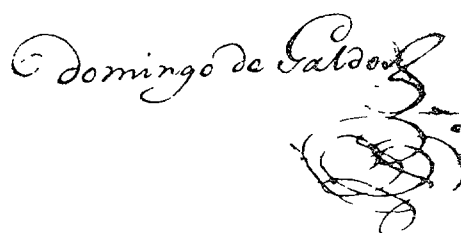 Domingo de Galdos